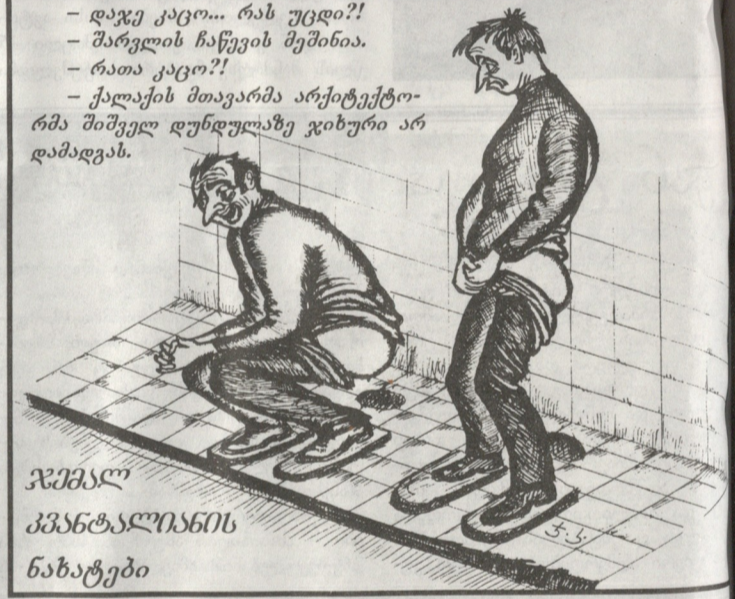 – დაჯე კაცო... რას უცდი?!
– შარვლის ჩაწევის მეშინია.
– რათა კაცო?!
– ქალაქის მთავარმა არქიტექტო-
რმა შიშველ დუნდულაზე ჯიხური არ
დამადგას.
ჯემალ
კვანტალიანის
ნახატები
ჯ.კ.